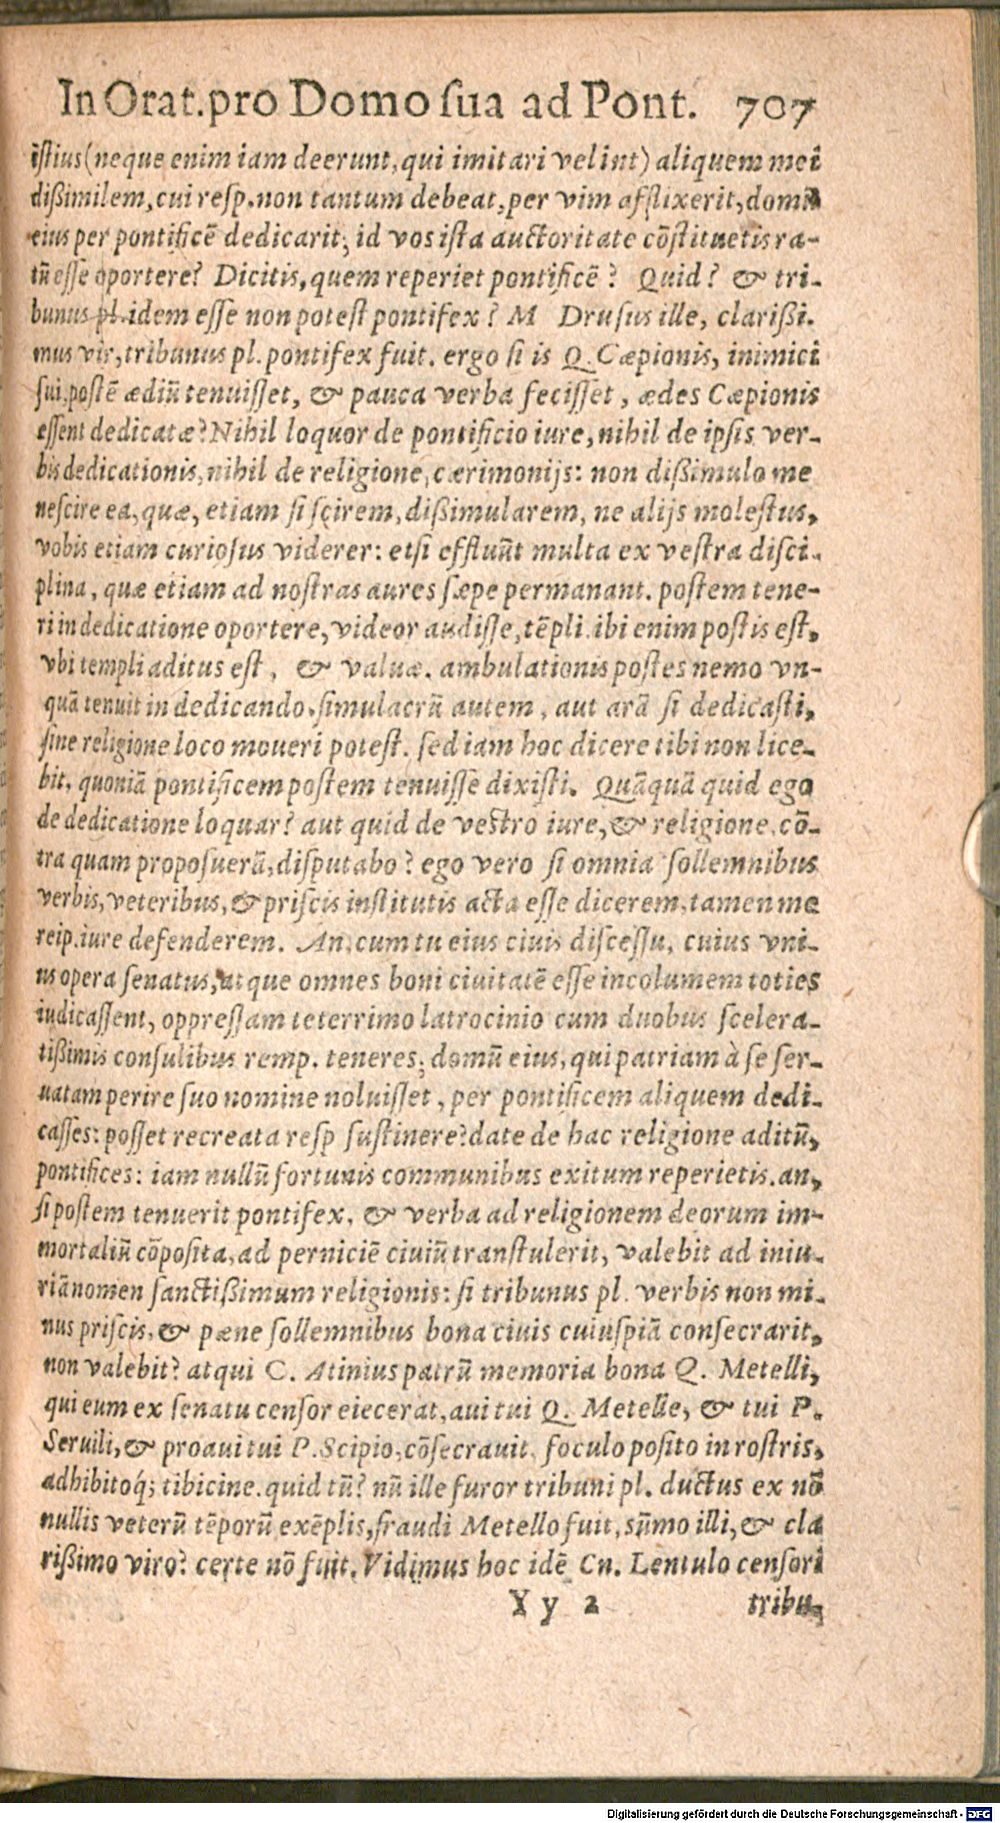 In Orat. pro Domo ſua ad Pont. 707
iſtius (neque enim iam deerunt, qui imitari velint) aliquem mei
dißimilem, cui reſp. non tantum debeat, per vim afflixerit, domū
eius per pontificē dedicarit; id vos iſta auctoritate cōſtituetis ra-
tū eſſe oportere? Dicitis, quem reperiet pontificē? Quid? & tri-
bunus pl. idem eſſe non poteſt pontifex? M Druſus ille, clarißi-
mus vir, tribunus pl. pontifex fuit. ergo ſi is Q. Cæpionis, inimici
ſui, poſtē ædiū tenuiſſet, & pauca verba feciſſet, ædes Cæpionis
eſſent dedicatæ? Nihil loquor de pontificio iure, nihil de ipſis ver-
bis dedicationis, nihil de religione, cærimonijs: non dißimulo me
neſcire ea, quæ, etiam ſi ſcirem, dißimularem, ne alijs moleſtus,
vobis etiam curioſus viderer: etſi effluūt multa ex veſtra diſci-
plina, quæ etiam ad noſtras aures ſæpe permanant. poſtem tene-
ri in dedicatione oportere, videor audiſſe, tēpli. ibi enim poſtis eſt,
vbi templi aditus eſt, & valuæ. ambulationis poſtes nemo vn-
quā tenuit in dedicando. ſimulacrū autem, aut arā ſi dedicaſti,
ſine religione loco moueri poteſt. ſed iam hoc dicere tibi non lice-
bit, quoniā pontificem poſtem tenuiſſe dixiſti. Quāquā quid ego
de dedicatione loquar? aut quid de veſtro iure, & religione, cō-
tra quam propoſuerā, diſputabo? ego vero ſi omnia ſollemnibus
verbis, veteribus, & priſcis inſtitutis acta eſſe dicerem, tamen me
reip. iure defenderem. An, cum tu eius ciuis diſceſſu, cuius vni-
us opera ſenatus, atque omnes boni ciuitatē eſſe incolumem toties
iudicaſſent, oppreſſam teterrimo latrocinio cum duobus ſcelera-
tißimis conſulibus remp. teneres; domū eius, qui patriam à ſe ſer-
uatam perire ſuo nomine noluiſſet, per pontificem aliquem dedi-
caſſes: poſſet recreata reſp ſuſtinere? date de hac religione aditū,
pontifices: iam nullū fortunis communibus exitum reperietis. an,
ſi poſtem tenuerit pontifex, & verba ad religionem deorum im-
mortaliū cōpoſita, ad perniciē ciuiū tranſtulerit, valebit ad iniu-
riā nomen ſanctißimum religionis: ſi tribunus pl. verbis non mi-
nus priſcis, & pæne ſollemnibus bona ciuis cuiuſpiā conſecrarit,
non valebit? atqui C. Atinius patrū memoria bona Q. Metelli,
qui eum ex ſenatu cenſor eiecerat, aui tui Q. Metelle, & tui P.
Seruili, & proaui tui P. Scipio, cōſecrauit, foculo poſito in roſtris,
adhibitoq́; tibicine. quid tū? nū ille furor tribuni pl. ductus ex nō
nullis veterū tēporū exēplis, fraudi Metello fuit, sūmo illi, & cla
rißimo viro? certe nō fuit. Vidimus hoc idē Cn. Lentulo cenſori
Y y 2 tribu-
Digitalisierung gefördert durch die Deutsche Forschungsgemeinschaft - DFG